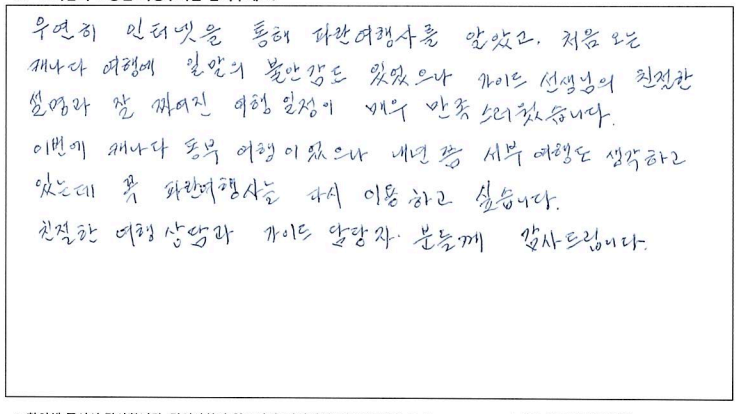 우연히 인터넷을 통해 파란여행사를 알았고, 처음 오는
캐나다 여행에 일말의 불안감도 있었으나 가이드 선생님의 친절한
설명과 잘 짜여진 여행 일정이 매우 만족스러웠습니다.
이번에 캐나다 동부 여행이었으나 내년쯤 서부 여행도 생각하고
있는데 꼭 파란여행사를 다시 이용하고 싶습니다.
친절한 여행 상담과 가이드 담당자 분들께 감사드립니다.